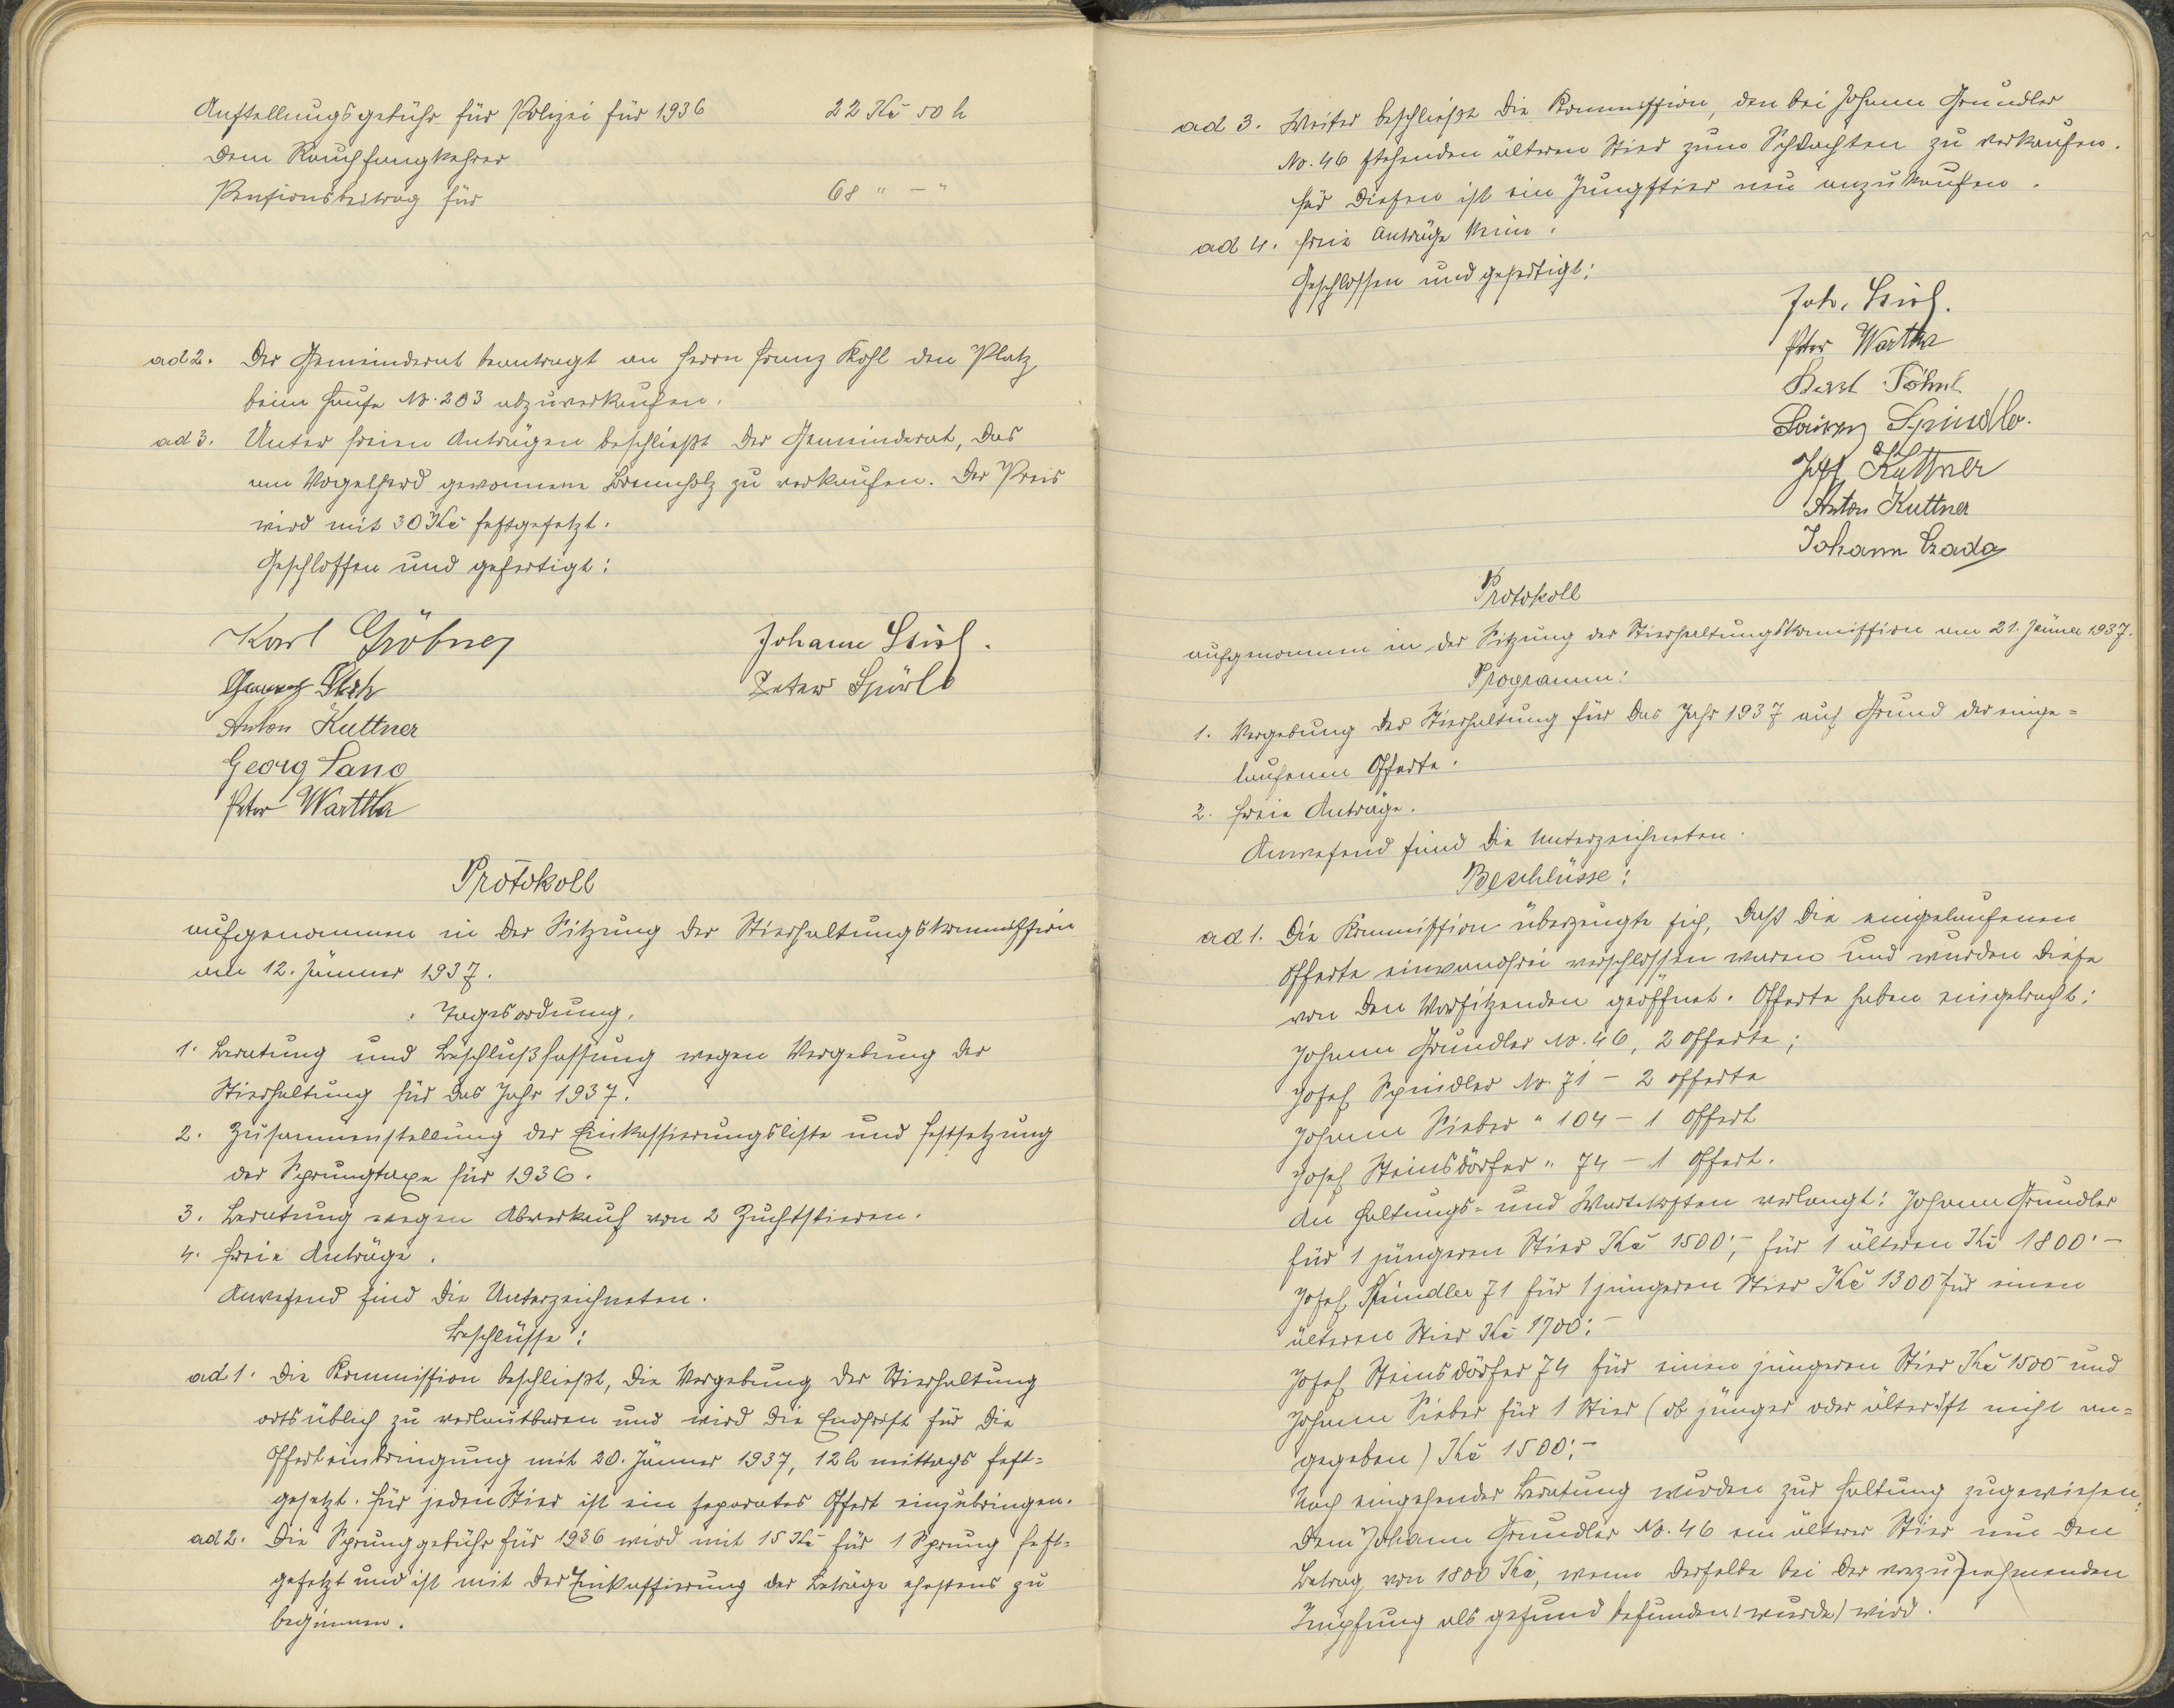 Aufstellungsgebühr für Polizei für 1936 22 Kč 50 h
Dem Rauchfangkehrer
Pensionsbeitrag für 68 " — "
ad 2. Der Gemeinderat beantragt an Herrn Franz Kohl den Platz
beim Hause No. 203 abzuverkaufen.
ad 3. Unter freien Anträgen beschließt der Gemeinderat, das
am Vogelherd gewonnene Brennholz zu verkaufen. Der Preis
wird mit 30 Kč festgesetzt.
Geschlossen und gefertigt:
Karl Gröbner Johann
Peter Spörl
Anton Kuttner
Georg Lang
Peter Wartha
Protokoll
aufgenommen in der Sitzung der Stierhaltungskommission
am 12. Jänner 1937.
Tagesordnung.
1. Beratung und Beschlußfassung wegen Vergebung der
Stierhaltung für das Jahr 1937.
2. Zusammenstellung der Einkassierungsliste und Festsetzung
der Sprungtaxe für 1936.
3. Beratung wegen Abverkauf von 2 Zuchtstieren.
4. Freie Anträge.
Anwesend sind die Unterzeichneten.
Beschlüsse:
ad 1. Die Kommission beschließt, die Vergebung der Stierhaltung
ortsüblich zu verlautbaren und wird die Endfrist für die
Offerteinbringung mit 20. Jänner 1937, 12 h mittags fest-
gesetzt. Für jeden Stier ist ein separates Offert einzubringen.
ad 2. Die Sprunggebühr für 1936 wird mit 15 Kč für 1 Sprung fest-
gesetzt und ist mit der Einkassierung der Beträge ehestens zu
beginnen.
ad 3. Weiter beschließt die Kommission, den bei Johann Grundler
No. 46 stehenden älteren Stier zum Schlachten zu verkaufen.
Für diesen ist ein Jungstier neu anzukaufen.
ad 4. Freie Anträge keine.
Geschlossen und gefertigt:
Joh.
Peter Wartha
Spindler
Josef Kuttner
Anton Kuttner
Johann Czada
Protokoll
aufgenommen in der Sitzung der Stierhaltungskommission am 21. Jänner 1937.
Programm:
1. Vergebung der Stierhaltung für das Jahr 1937 auf Grund der einge-
laufenen Offerte.
2. Freie Anträge.
Anwesend sind die Unterzeichneten.
Beschlüsse:
ad 1. Die Kommission überzeugte sich, daß die eingelaufenen
Offerte einwandfrei verschlossen waren und wurden diese
von den Vorsitzenden geöffnet. Offerte haben eingebracht:
Johann Grundler No. 46, 2 Offerte;
Josef Spindler No. 71 – 2 Offerte
Johann Sieber " 104 – 1 Offert
Josef Steinsdörfer " 74 – 1 Offert.
An Haltungs- und Wartekosten verlangt: Johann Grundler
für 1 jüngeren Stier Kč 1500·–, für 1 älteren Kč 1800·–
Josef Spindler 71 für 1 jüngeren Stier Kč 1300 für einen
älteren Stier Kč 1700·–
Josef Steinsdörfer 74 für einen jüngeren Stier Kč 1500 und
Johann Sieber für 1 Stier (ob jünger oder älter ist nicht an-
gegeben) Kč 1500·–
Nach eingehender Beratung wurden zur Haltung zugewiesen:
Dem Johann Grundler No. 46 ein älterer Stier um den
Betrag von 1800 Kč, wenn derselbe bei der vorzunehmenden
Impfung als gesund befunden (wurde) wird.